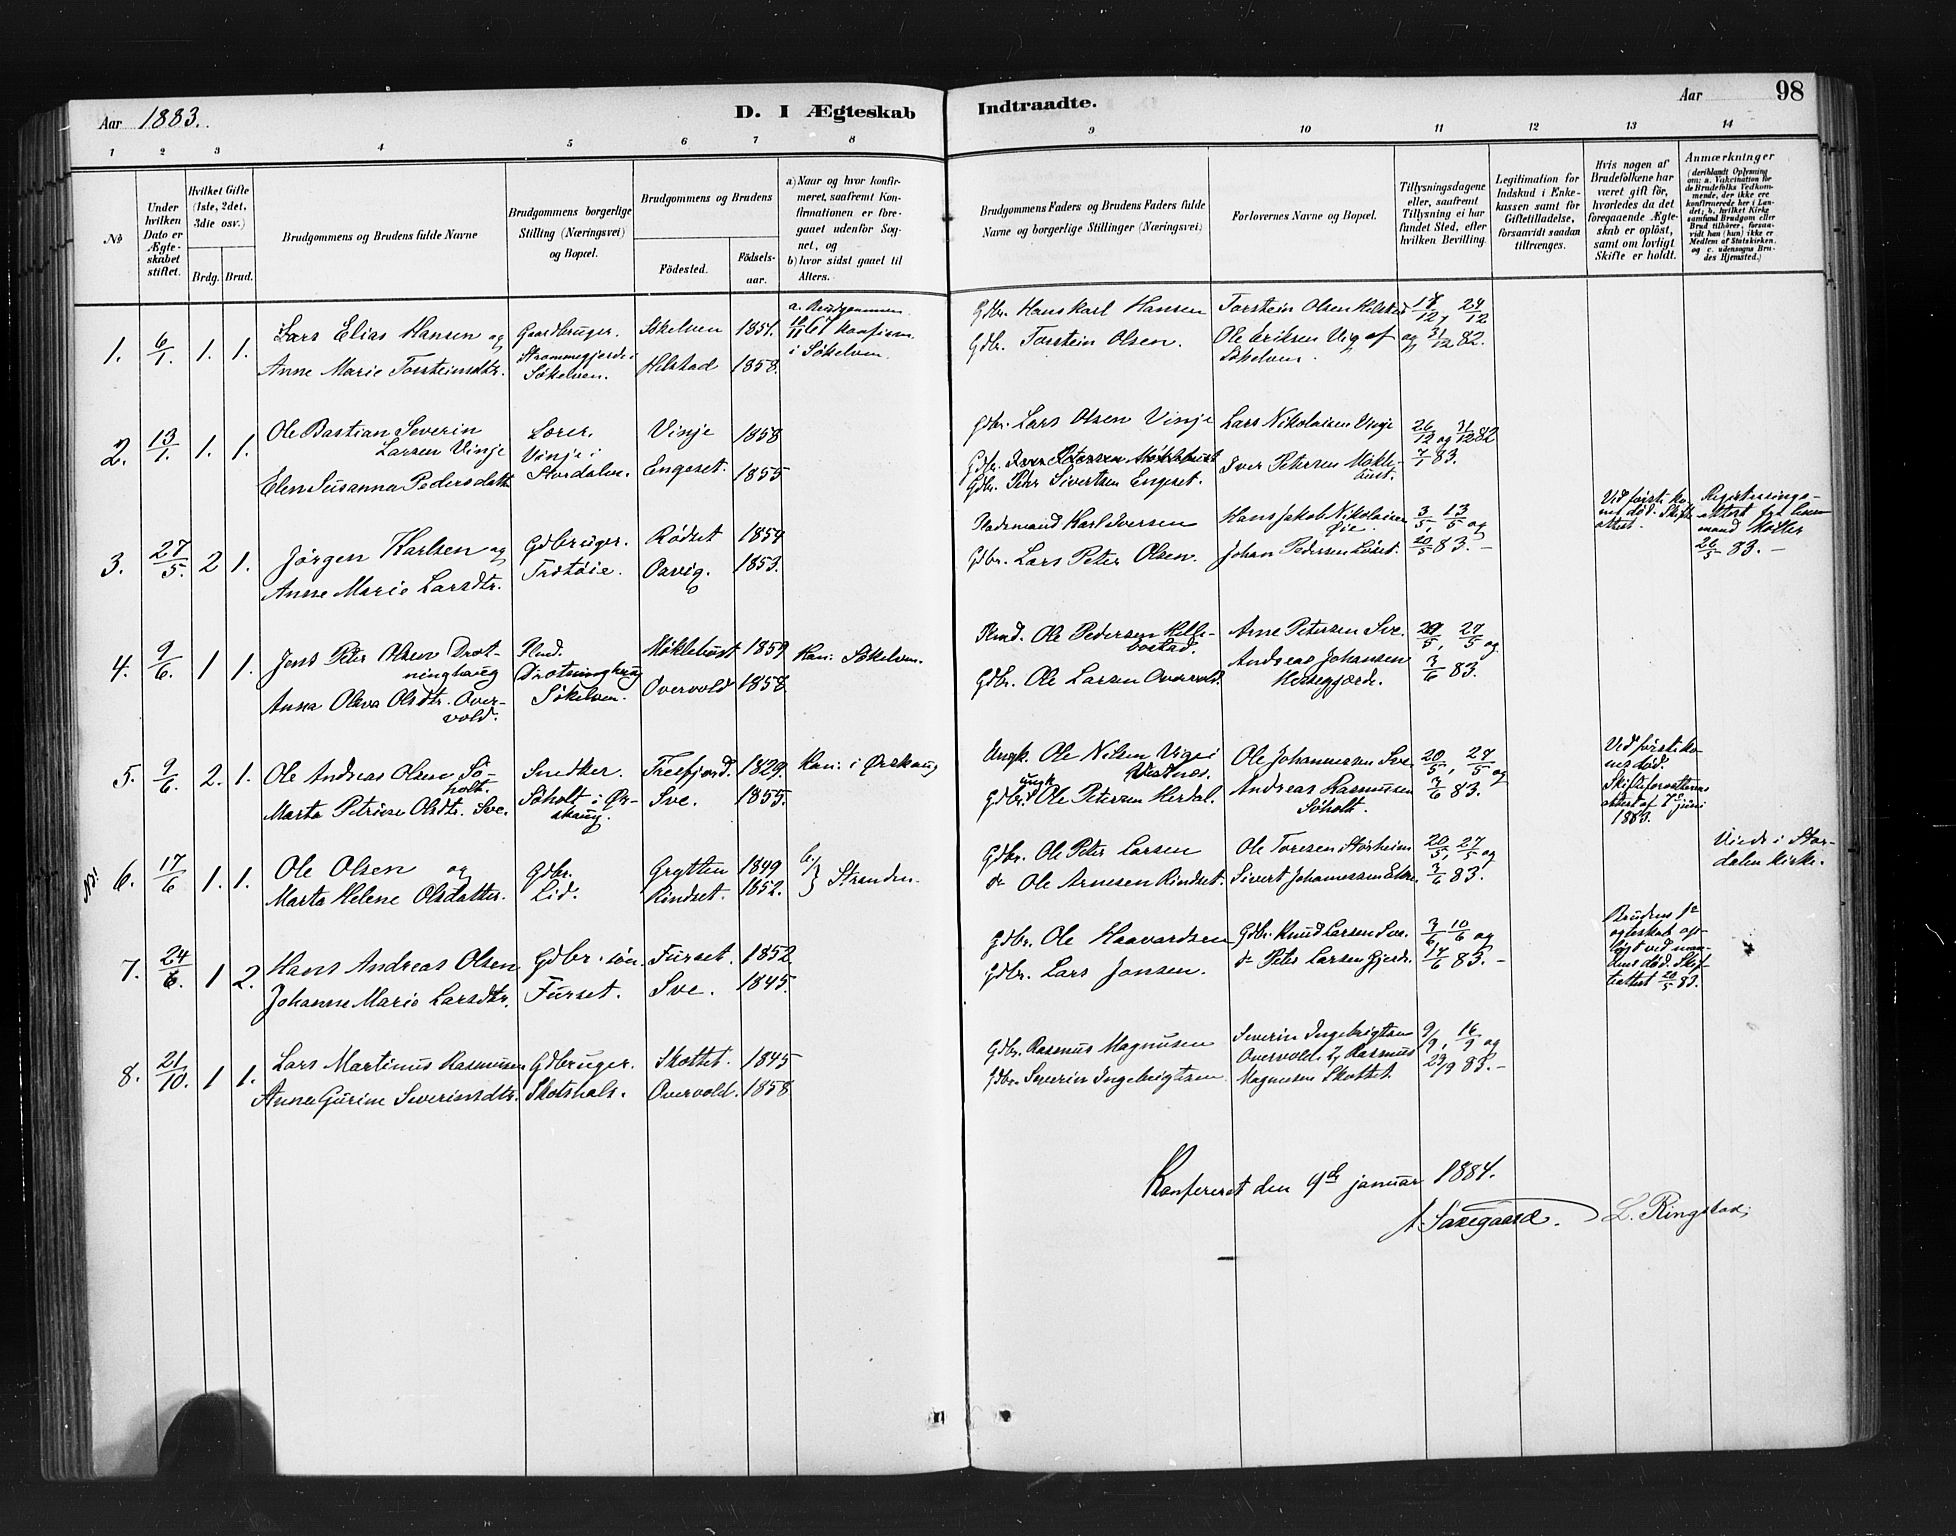 Aar 1883.
D. I Ægteskab Indtraadte.
Aar 98
1 2 3 4 5 6 7 8 9 10 11 12 13 14
No
Under hvilken Dato er Ægteskabet stiftet.
Hvilket Gifte (1ste, 2det, 3die osv.)
Brdg. Brud.
Brudgommens og Brudens fulde Navne
Brudgommens borgerlige Stilling (Næringsvei) og Bopæl.
Brudgommens og Brudens
Födested.
Födselsaar.
a) Naar og hvor konfirmeret, saafremt Konfirmationen er foregaaet udenfor Sognet, og
b) hvor sidst gaaet til Alters.
Brudgommens Faders og Brudens Faders fulde Navne og borgerlige Stillinger (Næringsvei)
Forlovernes Navne og Bopæl.
Tillysningsdagene eller, saafremt Tillysning ei har fundet Sted, efter hvilken Bevilling.
Legitimation for Indskud i Enkekassen samt for Giftetilladelse, forsavidt saadan tiltrænges.
Hvis nogen af Brudefolkene har været gift för, hvorledes da det foregaaende Ægteskab er oplöst, samt om lovligt Skifte er holdt.
Anmærkninger
(deriblandt Oplysning om: a. Vakcination for de Brudefolks Vedkommende, der ikke ere konfirmerede her i Landet; b. hvilket Kirkesamfund Brudgom eller Brud tilhörer, forsaavidt han (hun) ikke er Medlem af Statskirken, og c. udensogns Brudes Hjemsted.)
1. 6/1. 1. 1.
Lars Elias Hansen og
Anne Marie Torsteinsdtr.
Gaardbruger.
Strømmegjerde i
Søkelven.
Søkelven 1857.
Helstad 1858.
a. Brudgommen
67 konfirm.
i Søkelven.
Gdbr. Hans Karl Hansen
Gdbr. Torstein Olsen.
Torstein Olsen Helstad
Ole Eriksen Vig af
Søkelven.
17/12, 24/12
og 31/12 82.
2. 13/1. 1. 1.
Ole Bastian Severin
Larsen Vinje
Elen Susanna Pedersdatter
Lærer.
Vinje i
Stordalen.
Vinje 1858
Engeset. 1855
Gdbr. Lars Olsen Vinje
Gdbr. Iver Petersen Møklebust
Gdbr. Peder Sivertsen Engeset.
Lars Nikolaisen Vinje
Iver Petersen Møklebust.
26/12 og 31/12 82
7/1 83.
3. 27/5. 2 1.
Jørgen Karlsen og
Anne Marie Larsdtr.
Gdbruger.
Trætøie.
Rødset 1854
Osvig. 1853.
Pladsmand Karl Iversen
Gdbr. Lars Peter Olsen.
Hans Jakob Nikolaisen
Øie
Johan Pedersen Løset.
3/5, 13/5 og
20/5 83.–
Vid første konesdød. Skifteattest.
Registreringsattest fra Lensmand Kolles
26/5 83.–
4. 9/6. 1 1.
Jens Peter Olsen Drotninghaug
Anna Oleva Olsdtr. Overvold.
Plmd.
Drotninghaug
Søkelven.
Møklebust 1859
Overvold 1858
Han: Søkelven.
Plmd. Ole Pedersen Hellebostad.
Gdbr. Ole Larsen Overvold.
Arne Petersen Sve.
Andreas Johansen
20/5, 27/5 og
3/6 83.
5. 9/6. 2. 1.
Ole Andreas Olsen Søholt.
Marta Petrine Olsdtr. Sve.
Snedker.
Søholt i Ørskaug.
Treefjord. 1829.
Sve. 1855.
Han: i Ørskaug
Ungk. Ole Nilsen Vige i
Vestnes.
ungk
Gdbr. Ole Petersen Herdal.
Ole Johannessen Sve.
Andreas Rasmussen
Søholt.
20/5, 27/5 og
3/6 83.
Vid første konesdød.
Skifteforvalterens
attest af 7de juni
1883.
NB! 6. 17/6 1. 1.
Ole Olsen og
Marta Helene Olsdatter.
Gdbr.
Lid.
Grytten 1849
Rindset. 1852.
b/ } Stranden.
Gdbr. Ole Peter Larsen
do Ole Arnesen Rindset.
Ole Toresen Storheim
Sivert Johannessen Ekre.
20/5, 27/5 og
3/6 83.
Viede i Stordalen kirke.
7. 24/6. 1 2.
Hans Andreas Olsen
Johanne Marie Larsdtr.
Gdbr. søn
Furset.
Furset. 1852
Sve. 1845.
Gdbr. Ole Haavardsen
Gdbr. Lars Jonsen.
Gdbr. Knud Larsen Sve.
do Peter Larsen Gjerde.
3/6 10/6 og
17/6 83.–
Brudens 1ste
egteskab opløst ved mandens død. Skifteattest 20/5 83.
8. 21/10. 1 1.
Lars Martinus Rasmussen
Anne Gurine Severinsdtr.
Gdbruger.
Skotshals.
Skottet. 1845
Overvold. 1858
Gdbr. Rasmus Magnusen
Gdbr. Severin Ingebrigtsen
Severin Ingebrigtsen
Overvold. og Rasmus
Magnusen Skottet.
9/9, 16/9 og
23/9 83.–
Konfereret den 9de januar 1884.
A. Saxegaard. L. Ringstad.